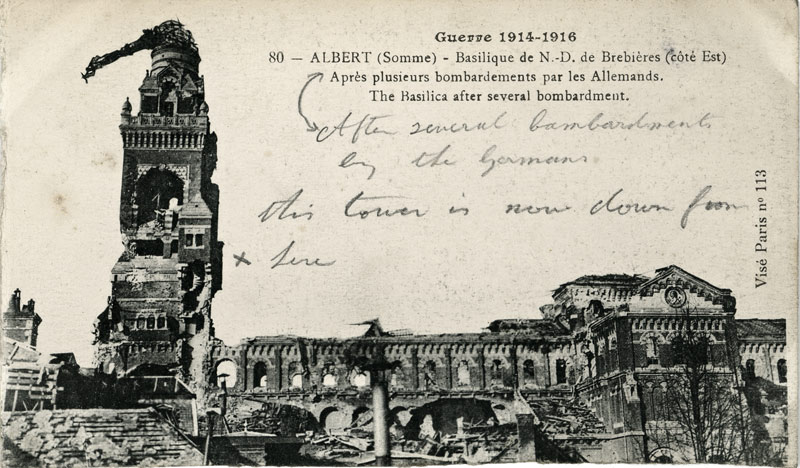 Guerre 1914-1916
80 — ALBERT (Somme) - Basilique de N.-D. de Brebières (côté Est)
Après plusieurs bombardements par les Allemands.
The Basilica after several bombardment.
After several bambardments
by the Germans
this tower is now down from
x here
Visé Paris nº 113